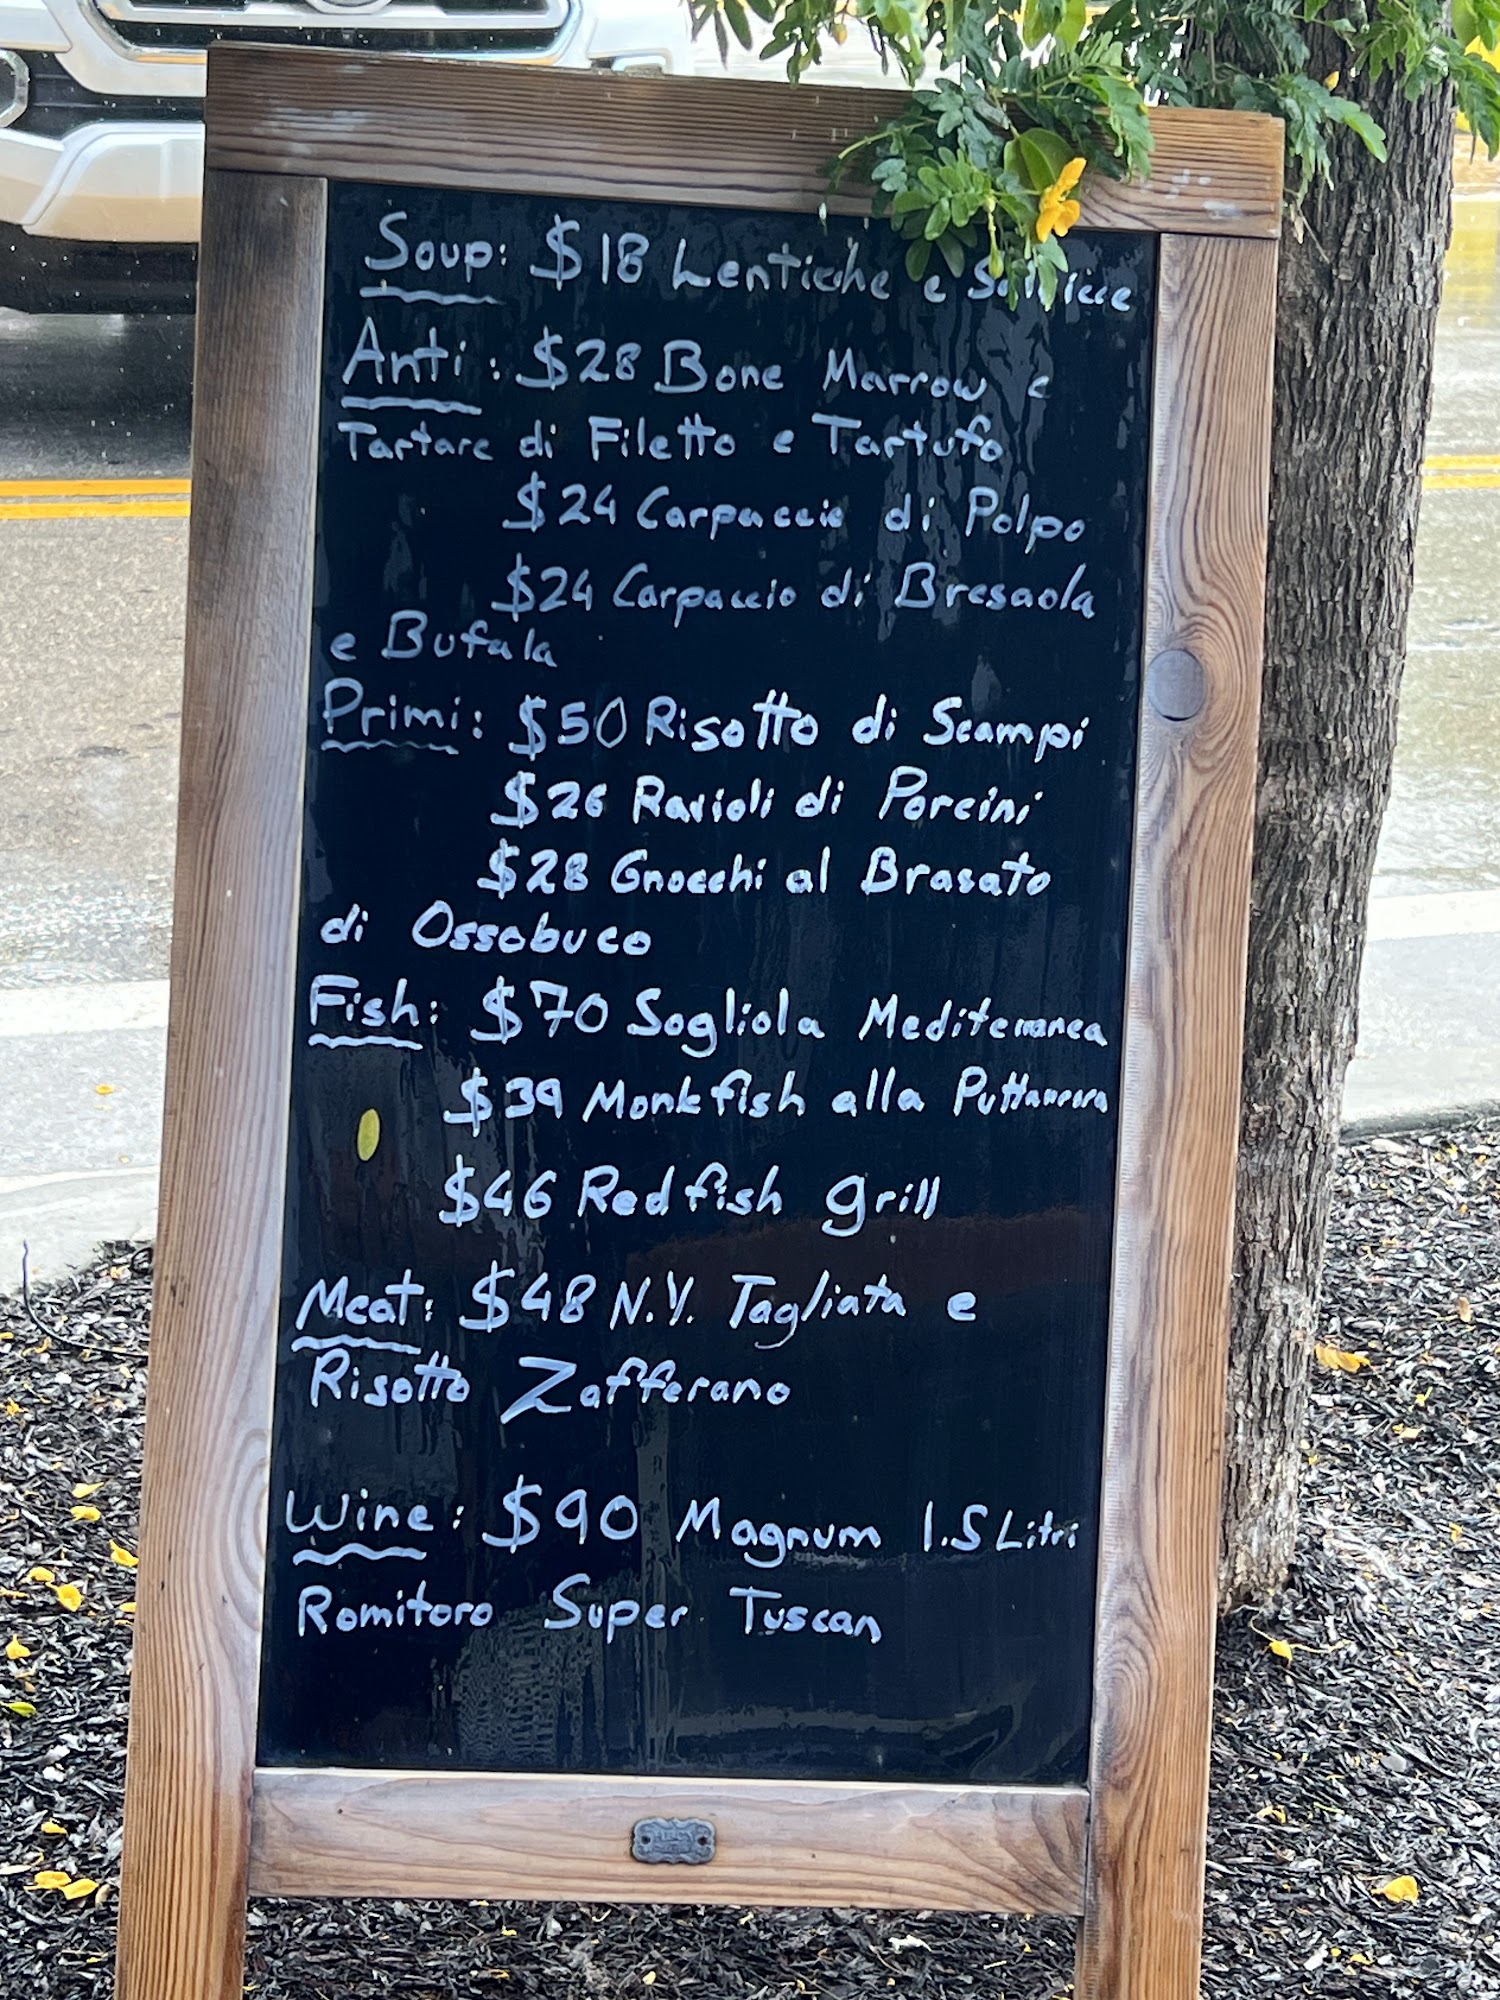 Soup: $18 Lenticche e Salsicce
Anti: $28 Bone Marrow e
Tartare di Filetto e Tartufo
$24 Carpaccio di Polpo
$24 Carpaccio di Bresaola
e Bufala
Primi: $50 Risotto di Scampi
$26 Ravioli di Porcini
$28 Gnocchi al Brasato
di Ossobuco
Fish: $70 Sogliola Mediterranea
$39 Monkfish alla
$46 Redfish grill
Meat: $48 N.Y. Tagliata e
Risotto Zafferano
Wine: $90 Magnum 1.5 Litri
Romitoro Super Tuscan